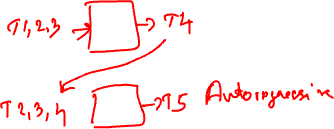 T1,2,3 T4
T2,3,4 T5 Autoregressive